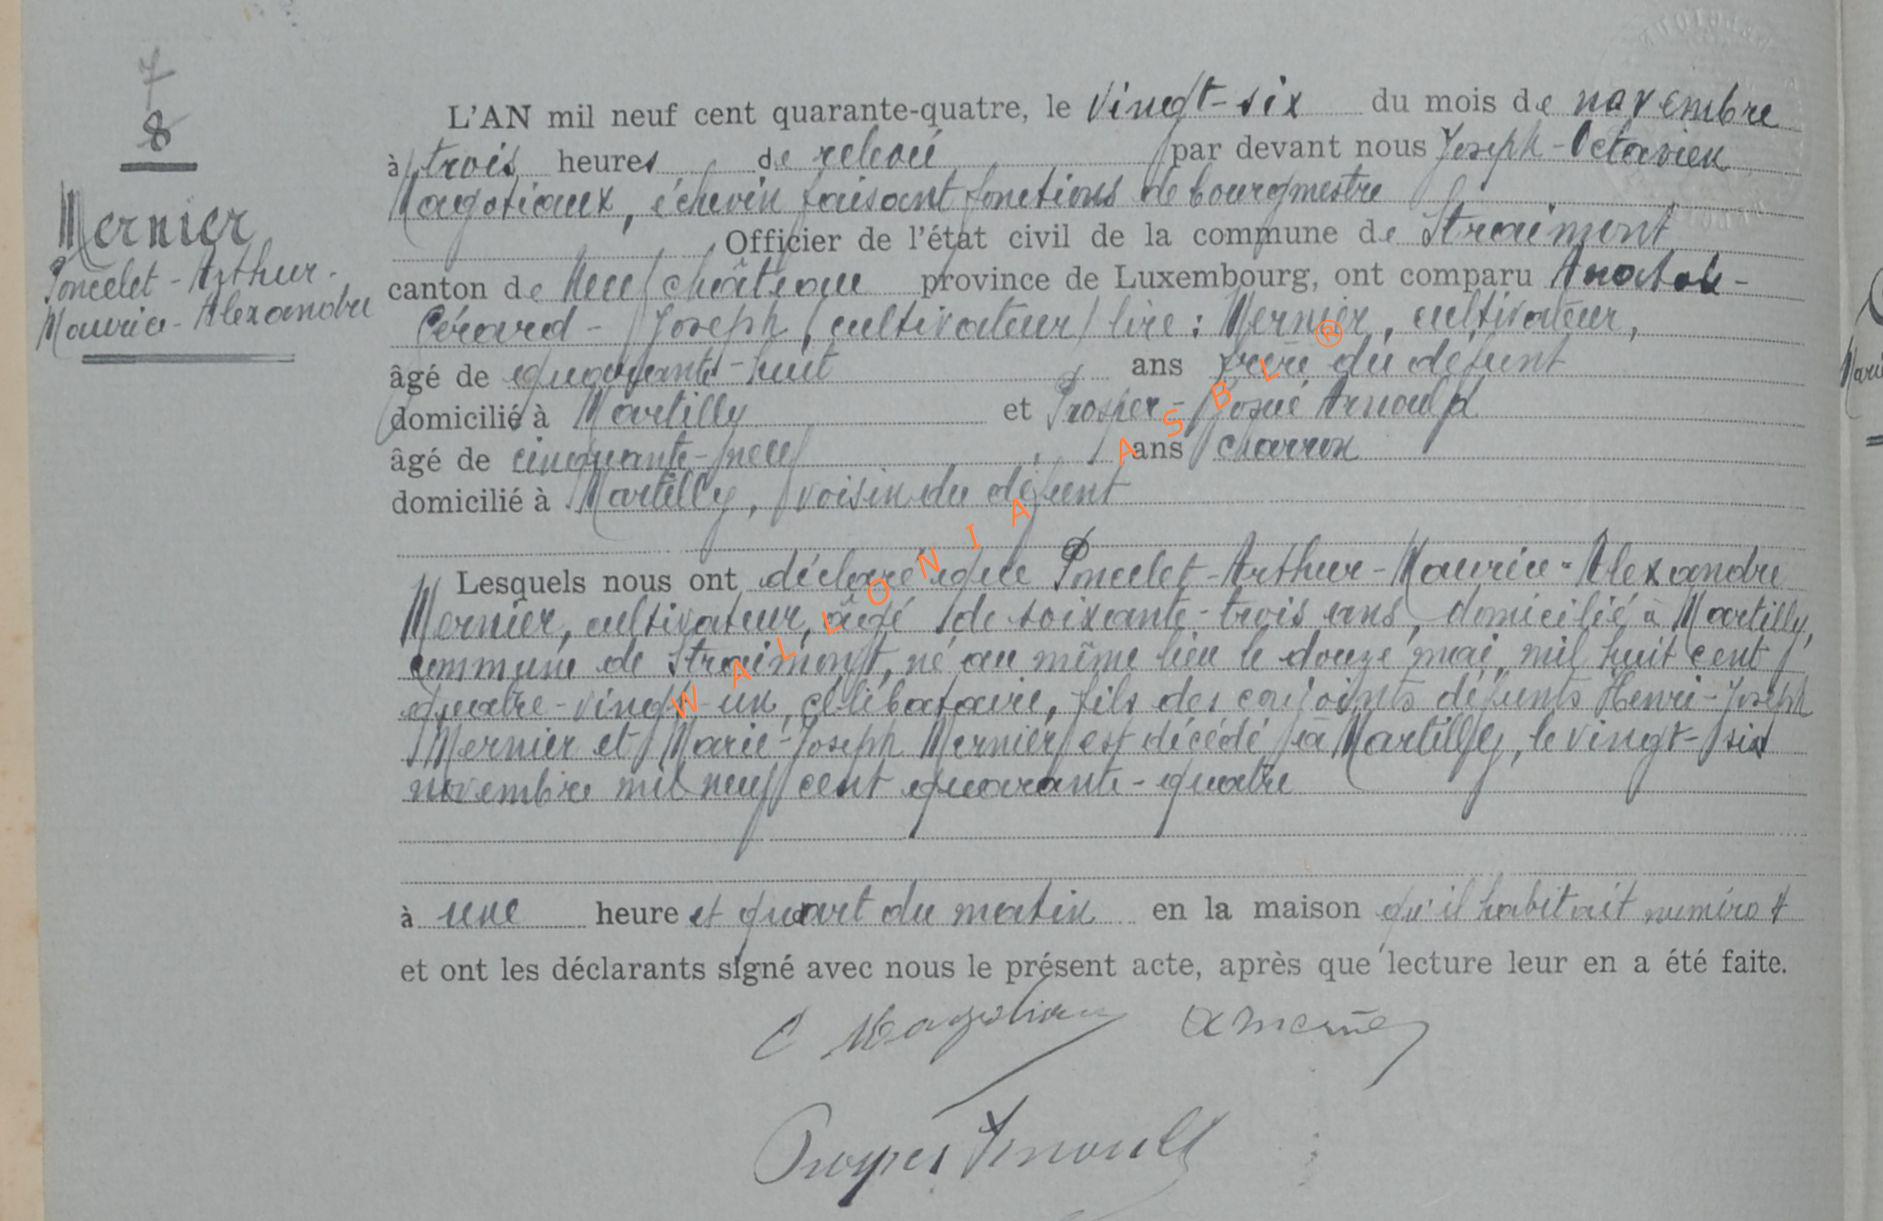 7
8
Mernier
Poncelet-Arthur-
Maurice-Alexandre
L'AN mil neuf cent quarante-quatre, le vingt-six du mois de novembre
à trois heures de relevé par devant nous Joseph-Octavien
Magotiaux, échevin faisant fonctions de bourgmestre
Officier de l'état civil de la commune de Straimont
canton de Neufchâteau province de Luxembourg, ont comparu Anatole-
Gérard-Joseph (cultivateur) lire: Mernier, cultivateur,
âgé de quarante-huit ans frère du défunt
domicilié à Martilly et Prosper-Josué Arnould
âgé de cinquante-neuf ans charron
domicilié à Martilly, voisin du défunt
Lesquels nous ont déclaré que Poncelet-Arthur-Maurice-Alexandre
Mernier, cultivateur, âgé de soixante-trois ans, domicilié à Martilly,
commune de Straimont, né au même lieu le douze mai, mil huit cent
quatre-vingt-un, célibataire, fils des conjoints défunts Henri-Joseph
Mernier et Marie-Joseph Mernier est décédé à Martilly, le vingt-six
novembre mil neuf cent quarante-quatre
à une heure et quart du matin en la maison qu'il habitait numéro
et ont les déclarants signé avec nous le présent acte, après que lecture leur en a été faite.
O Magotiaux A Mernier
Prosper Arnould
WALLONIA ASBL ®